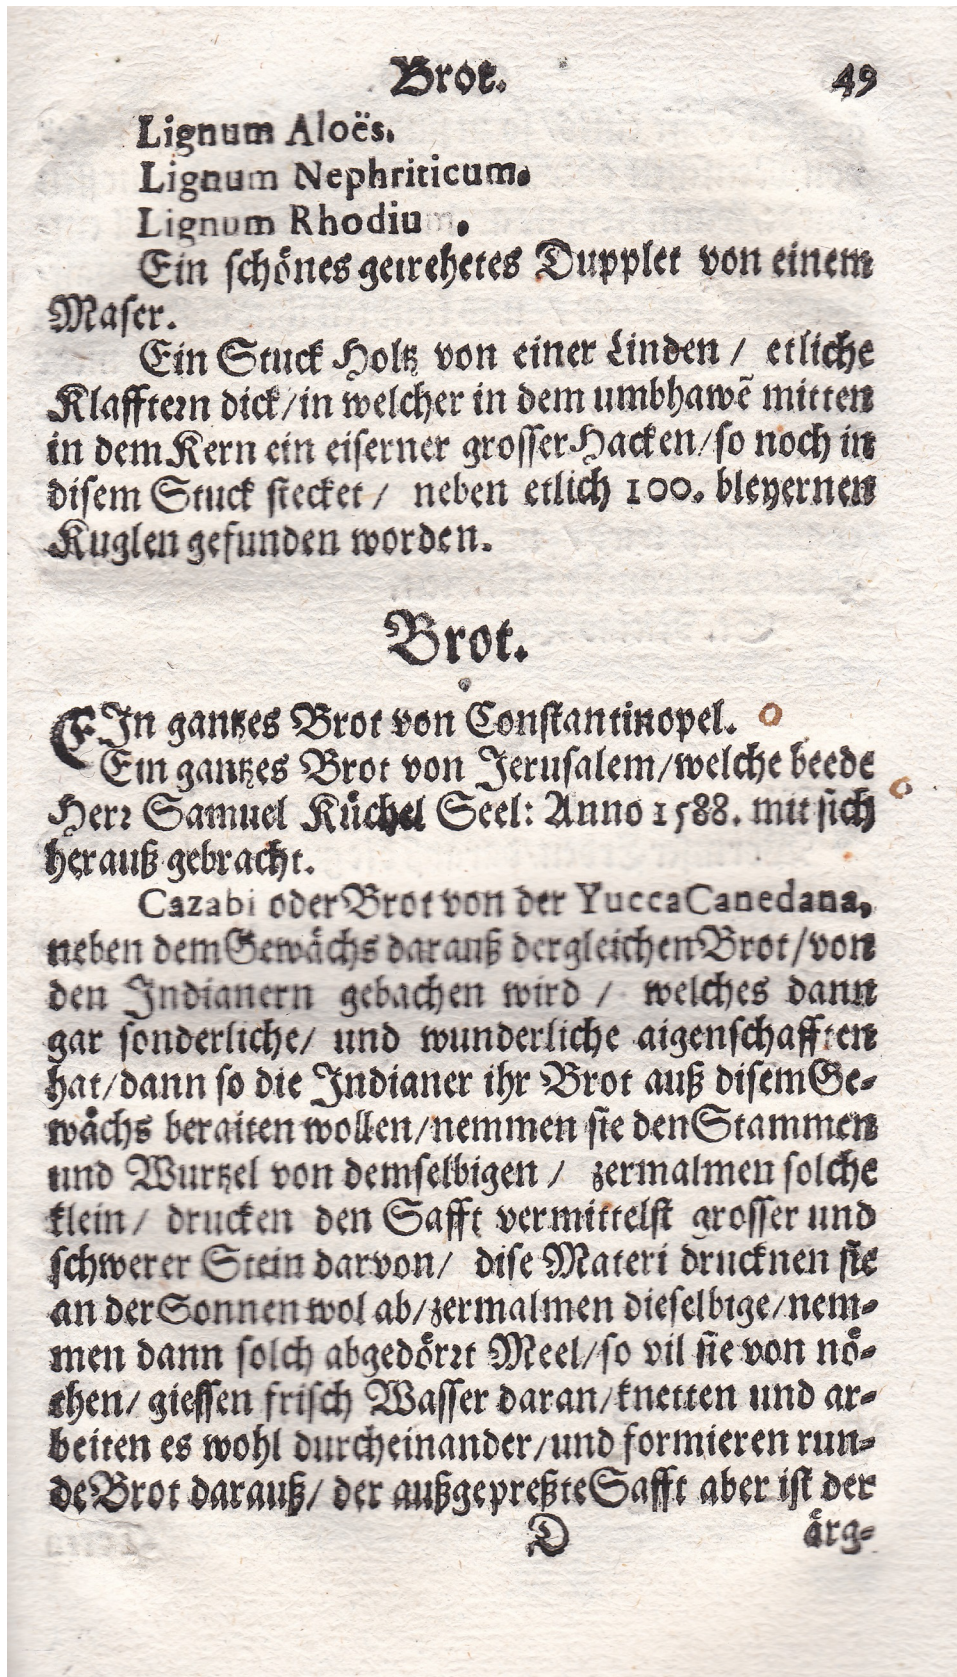 Brot. 49
Lignum Aloës.
Lignum Nephriticum.
Lignum Rhodium.
Ein ſchönes getrehetes Dupplet von einem
Maſer.
Ein Stuck Holtz von einer Linden / etliche
Klafftern dick/in welcher in dem umbhawẽ mitten
in dem Kern ein eiſerner groſſer Hacken/ſo noch in
diſem Stuck ſtecket / neben etlich 100. bleyernen
Kuglen gefunden worden.
Brot.
EIn gantzes Brot von Conſtantinopel.
Ein gantzes Brot von Jeruſalem/welche beede
Herꝛ Samuel Küchel Seel: Anno 1588. mit ſich
herauß gebracht.
Cazabi oder Brot von der Yucca Canedana,
neben dem Gewächs darauß dergleichen Brot/von
den Indianern gebachen wird / welches dann
gar ſonderliche/ und wunderliche aigenſchafften
hat/dann ſo die Indianer ihr Brot auß diſem Ge-
wächs beraiten wollen/nemmen ſie den Stammen
und Wurtzel von demſelbigen / zermalmen ſolche
klein/ drucken den Safft vermittelſt groſſer und
ſchwerer Stein darvon/ diſe Materi drucknen ſie
an der Sonnen wol ab/zermalmen dieſelbige/nem-
men dann ſolch abgedörꝛt Meel/ſo vil ſie von nö-
then/ gieſſen friſch Waſſer daran/knetten und ar-
beiten es wohl durcheinander/und formieren run-
de Brot darauß/ der außgepreßte Safft aber iſt der
D ärg-